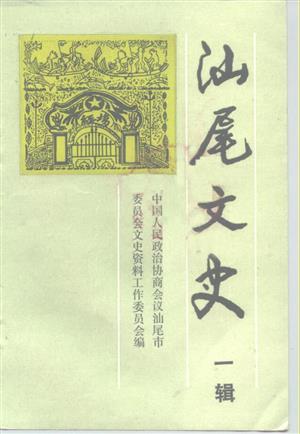 汕尾文史
一辑
中国人民政治协商会议汕尾市
委员会文史资料工作委员会编